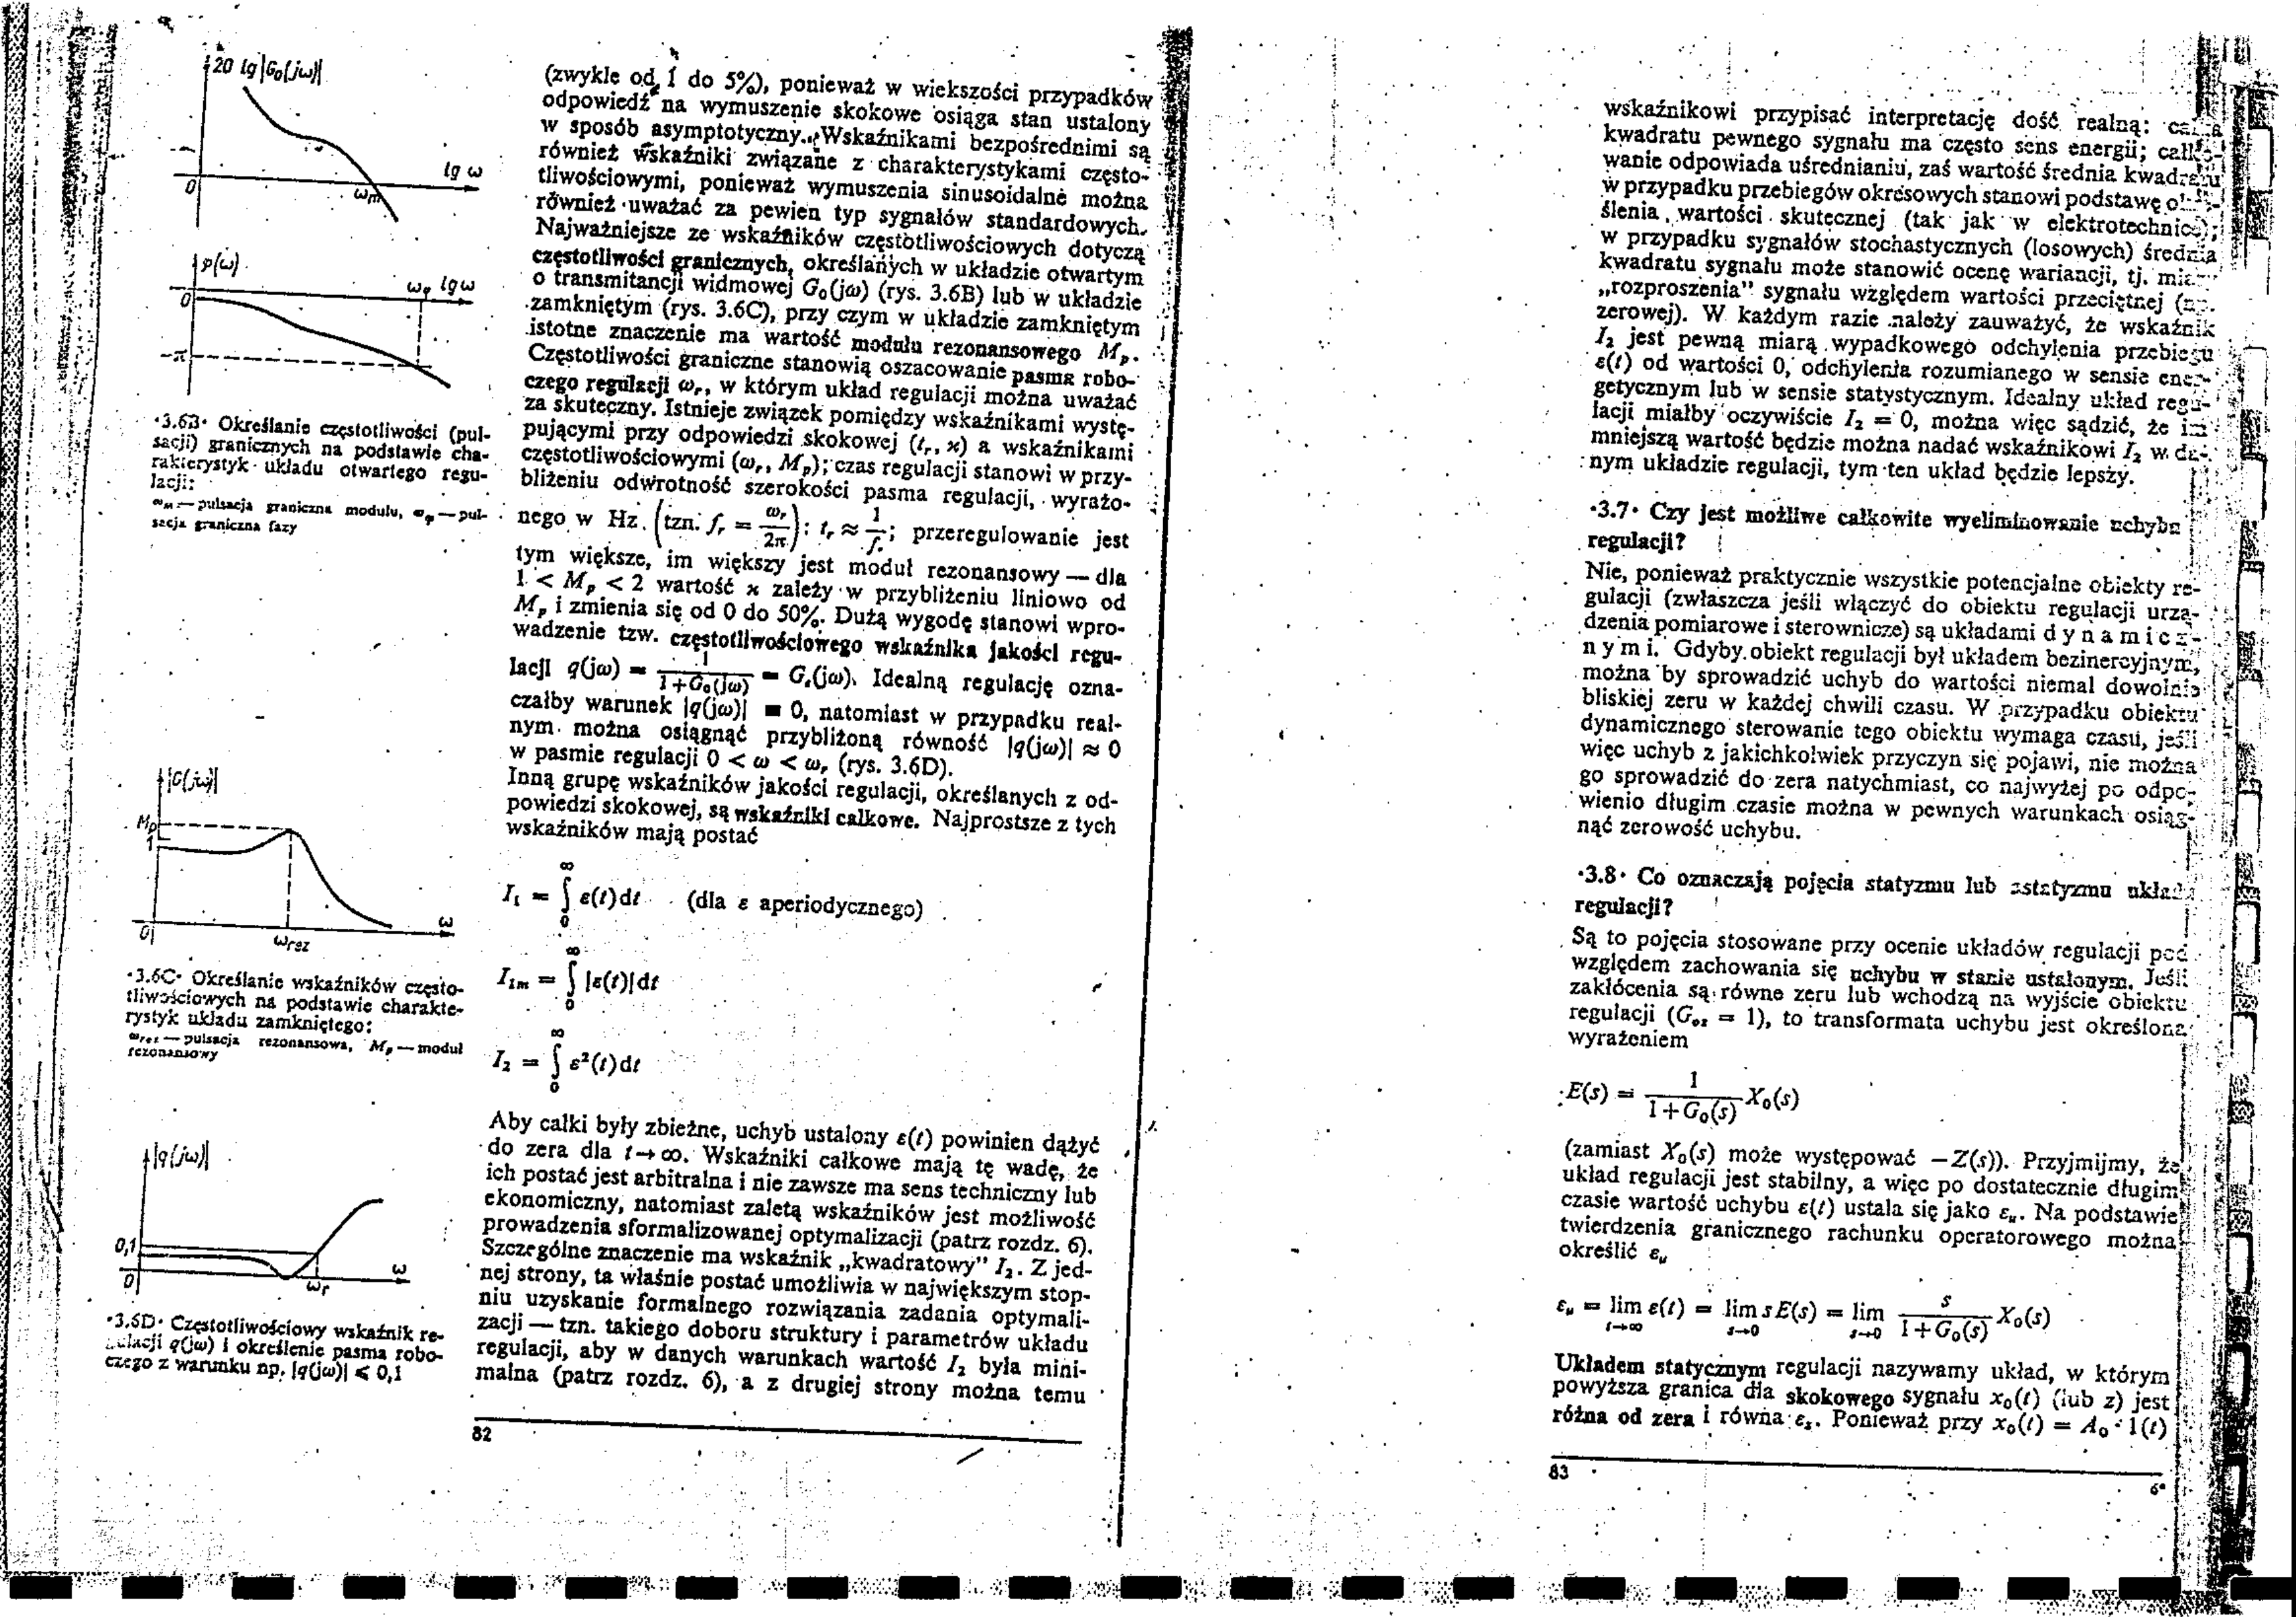 20 lg|G₀(jω)|
lg ω
0
ωm
φ(ω)
ωφ lg ω
0
-π
•3.6B• Określanie częstotliwości (pul-
sacji) granicznych na podstawie cha-
rakterystyk układu otwartego regu-
lacji:
ωM — pulsacja graniczna modułu, ωφ — pul-
sacja graniczna fazy
|G(jω)|
Mp
1
0
ωrez
ω
•3.6C• Określanie wskaźników często-
tliwościowych na podstawie charakte-
rystyk układu zamkniętego:
ωrez — pulsacja rezonansowa, Mp — moduł
rezonansowy
|q(jω)|
0,1
0
ωr
ω
•3.6D• Częstotliwościowy wskaźnik re-
gulacji q(jω) i określenie pasma robo-
czego z warunku np. |q(jω)| ⩽ 0,1
(zwykle od 1 do 5%), ponieważ w wiekszości przypadków
odpowiedź na wymuszenie skokowe osiąga stan ustalony
w sposób asymptotyczny. Wskaźnikami bezpośrednimi są
również wskaźniki związane z charakterystykami często-
tliwościowymi, ponieważ wymuszenia sinusoidalne można
również uważać za pewien typ sygnałów standardowych.
Najważniejsze ze wskaźników częstotliwościowych dotyczą
częstotliwości granicznych, określanych w układzie otwartym
o transmitancji widmowej G₀(jω) (rys. 3.6B) lub w układzie
zamkniętym (rys. 3.6C), przy czym w układzie zamkniętym
istotne znaczenie ma wartość modułu rezonansowego Mp.
Częstotliwości graniczne stanowią oszacowanie pasma robo-
czego regulacji ωr, w którym układ regulacji można uważać
za skuteczny. Istnieje związek pomiędzy wskaźnikami wystę-
pującymi przy odpowiedzi skokowej (tr, ϰ) a wskaźnikami
częstotliwościowymi (ωr, Mp); czas regulacji stanowi w przy-
bliżeniu odwrotność szerokości pasma regulacji, wyrażo-
nego w Hz (tzn. fr = ωr/2π): tr ≈ 1/fr; przeregulowanie jest
tym większe, im większy jest moduł rezonansowy — dla
1 < Mp < 2 wartość ϰ zależy w przybliżeniu liniowo od
Mp i zmienia się od 0 do 50%. Dużą wygodę stanowi wpro-
wadzenie tzw. częstotliwościowego wskaźnika jakości regu-
lacji q(jω) = 1/(1+G₀(jω)) = Gε(jω). Idealną regulację ozna-
czałby warunek |q(jω)| ≡ 0, natomiast w przypadku real-
nym można osiągnąć przybliżoną równość |q(jω)| ≈ 0
w pasmie regulacji 0 < ω < ωr (rys. 3.6D).
Inną grupę wskaźników jakości regulacji, określanych z od-
powiedzi skokowej, są wskaźniki całkowe. Najprostsze z tych
wskaźników mają postać
I₁ = ∫₀^∞ ε(t)dt (dla ε aperiodycznego)
I₁m = ∫₀^∞ |ε(t)|dt
I₂ = ∫₀^∞ ε²(t)dt
Aby całki były zbieżne, uchyb ustalony ε(t) powinien dążyć
do zera dla t→∞. Wskaźniki całkowe mają tę wadę, że
ich postać jest arbitralna i nie zawsze ma sens techniczny lub
ekonomiczny, natomiast zaletą wskaźników jest możliwość
prowadzenia sformalizowanej optymalizacji (patrz rozdz. 6).
Szczególne znaczenie ma wskaźnik „kwadratowy" I₂. Z jed-
nej strony, ta właśnie postać umożliwia w największym stop-
niu uzyskanie formalnego rozwiązania zadania optymali-
zacji — tzn. takiego doboru struktury i parametrów układu
regulacji, aby w danych warunkach wartość I₂ była mini-
malna (patrz rozdz. 6), a z drugiej strony można temu
82
wskaźnikowi przypisać interpretację dość realną:
kwadratu pewnego sygnału ma często sens energii; całko-
wanie odpowiada uśrednianiu, zaś wartość średnia kwadratu
w przypadku przebiegów okresowych stanowi podstawę
ślenia wartości skutecznej (tak jak w elektrotechnice);
w przypadku sygnałów stochastycznych (losowych) średnia
kwadratu sygnału może stanowić ocenę wariancji, tj.
„rozproszenia" sygnału względem wartości przeciętnej (np.
zerowej). W każdym razie należy zauważyć, że wskaźnik
I₂ jest pewną miarą wypadkowego odchylenia przebiegu
ε(t) od wartości 0, odchylenia rozumianego w sensie ener-
getycznym lub w sensie statystycznym. Idealny układ regu-
lacji miałby oczywiście I₂ = 0, można więc sądzić, że im
mniejszą wartość będzie można nadać wskaźnikowi I₂ w da-
nym układzie regulacji, tym ten układ będzie lepszy.
•3.7• Czy jest możliwe całkowite wyeliminowanie uchybu
regulacji?
Nie, ponieważ praktycznie wszystkie potencjalne obiekty re-
gulacji (zwłaszcza jeśli włączyć do obiektu regulacji urzą-
dzenia pomiarowe i sterownicze) są układami dynamicz-
nymi. Gdyby obiekt regulacji był układem bezinercyjnym,
można by sprowadzić uchyb do wartości niemal dowolnie
bliskiej zeru w każdej chwili czasu. W przypadku obiektu
dynamicznego sterowanie tego obiektu wymaga czasu, jeśli
więc uchyb z jakichkolwiek przyczyn się pojawi, nie można
go sprowadzić do zera natychmiast, co najwyżej po odpo-
wienio długim czasie można w pewnych warunkach osiąg-
nąć zerowość uchybu.
•3.8• Co oznaczają pojęcia statyzmu lub astatyzmu układu
regulacji?
Są to pojęcia stosowane przy ocenie układów regulacji pod
względem zachowania się uchybu w stanie ustalonym. Jeśli
zakłócenia są równe zeru lub wchodzą na wyjście obiektu
regulacji (Goz = 1), to transformata uchybu jest określona
wyrażeniem
E(s) = 1/(1+G₀(s)) X₀(s)
(zamiast X₀(s) może występować −Z(s)). Przyjmijmy, że
układ regulacji jest stabilny, a więc po dostatecznie długim
czasie wartość uchybu ε(t) ustala się jako εu. Na podstawie
twierdzenia granicznego rachunku operatorowego można
określić εu
εu = lim t→∞ ε(t) = lim s→0 sE(s) = lim s→0 s/(1+G₀(s)) X₀(s)
Układem statycznym regulacji nazywamy układ, w którym
powyższa granica dla skokowego sygnału x₀(t) (lub z) jest
różna od zera i równa εs. Ponieważ przy x₀(t) = A₀ · 1(t)
83
6*